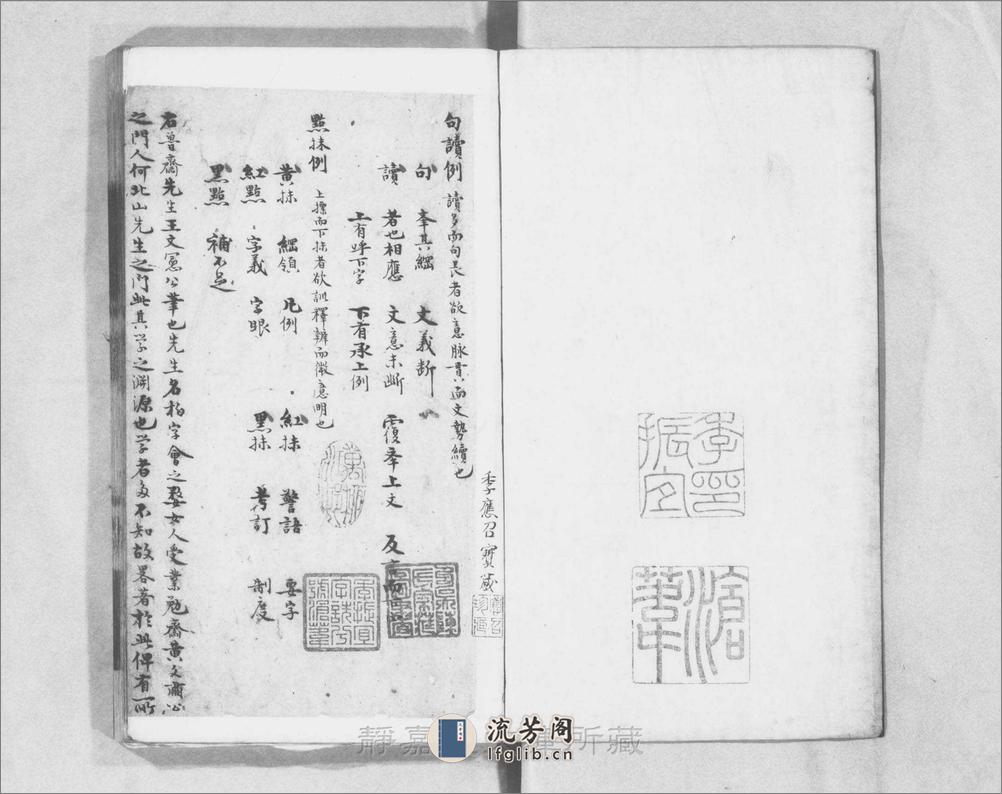 季印
振宜
滄
葦
季應召寳蔵
句讀例 讀多而句長者欲意脉貫而文勢續也
句 奉其綱 文義断
讀 者也相應 文意未断 覆奉上文 反言而
上有呼下字 下有承上例
點抹例 上摽而下抹者欲訓釋辨而徵意明也
黄抹 綱領 凡例 紅抹 警語 要字
紅點 字義 字眼 黒抹 考訂 制度
黒點 補不足
右魯齋先生王文憲公筆也先生名柏字會之婺女人受業勉齋黄文肅公
之門人何北山先生之門此其学之渊源也学者多不知故畧著於此俾有所
季振宜
字詵兮
號滄葦
靜嘉 所藏
流芳阁
lfglib.cn